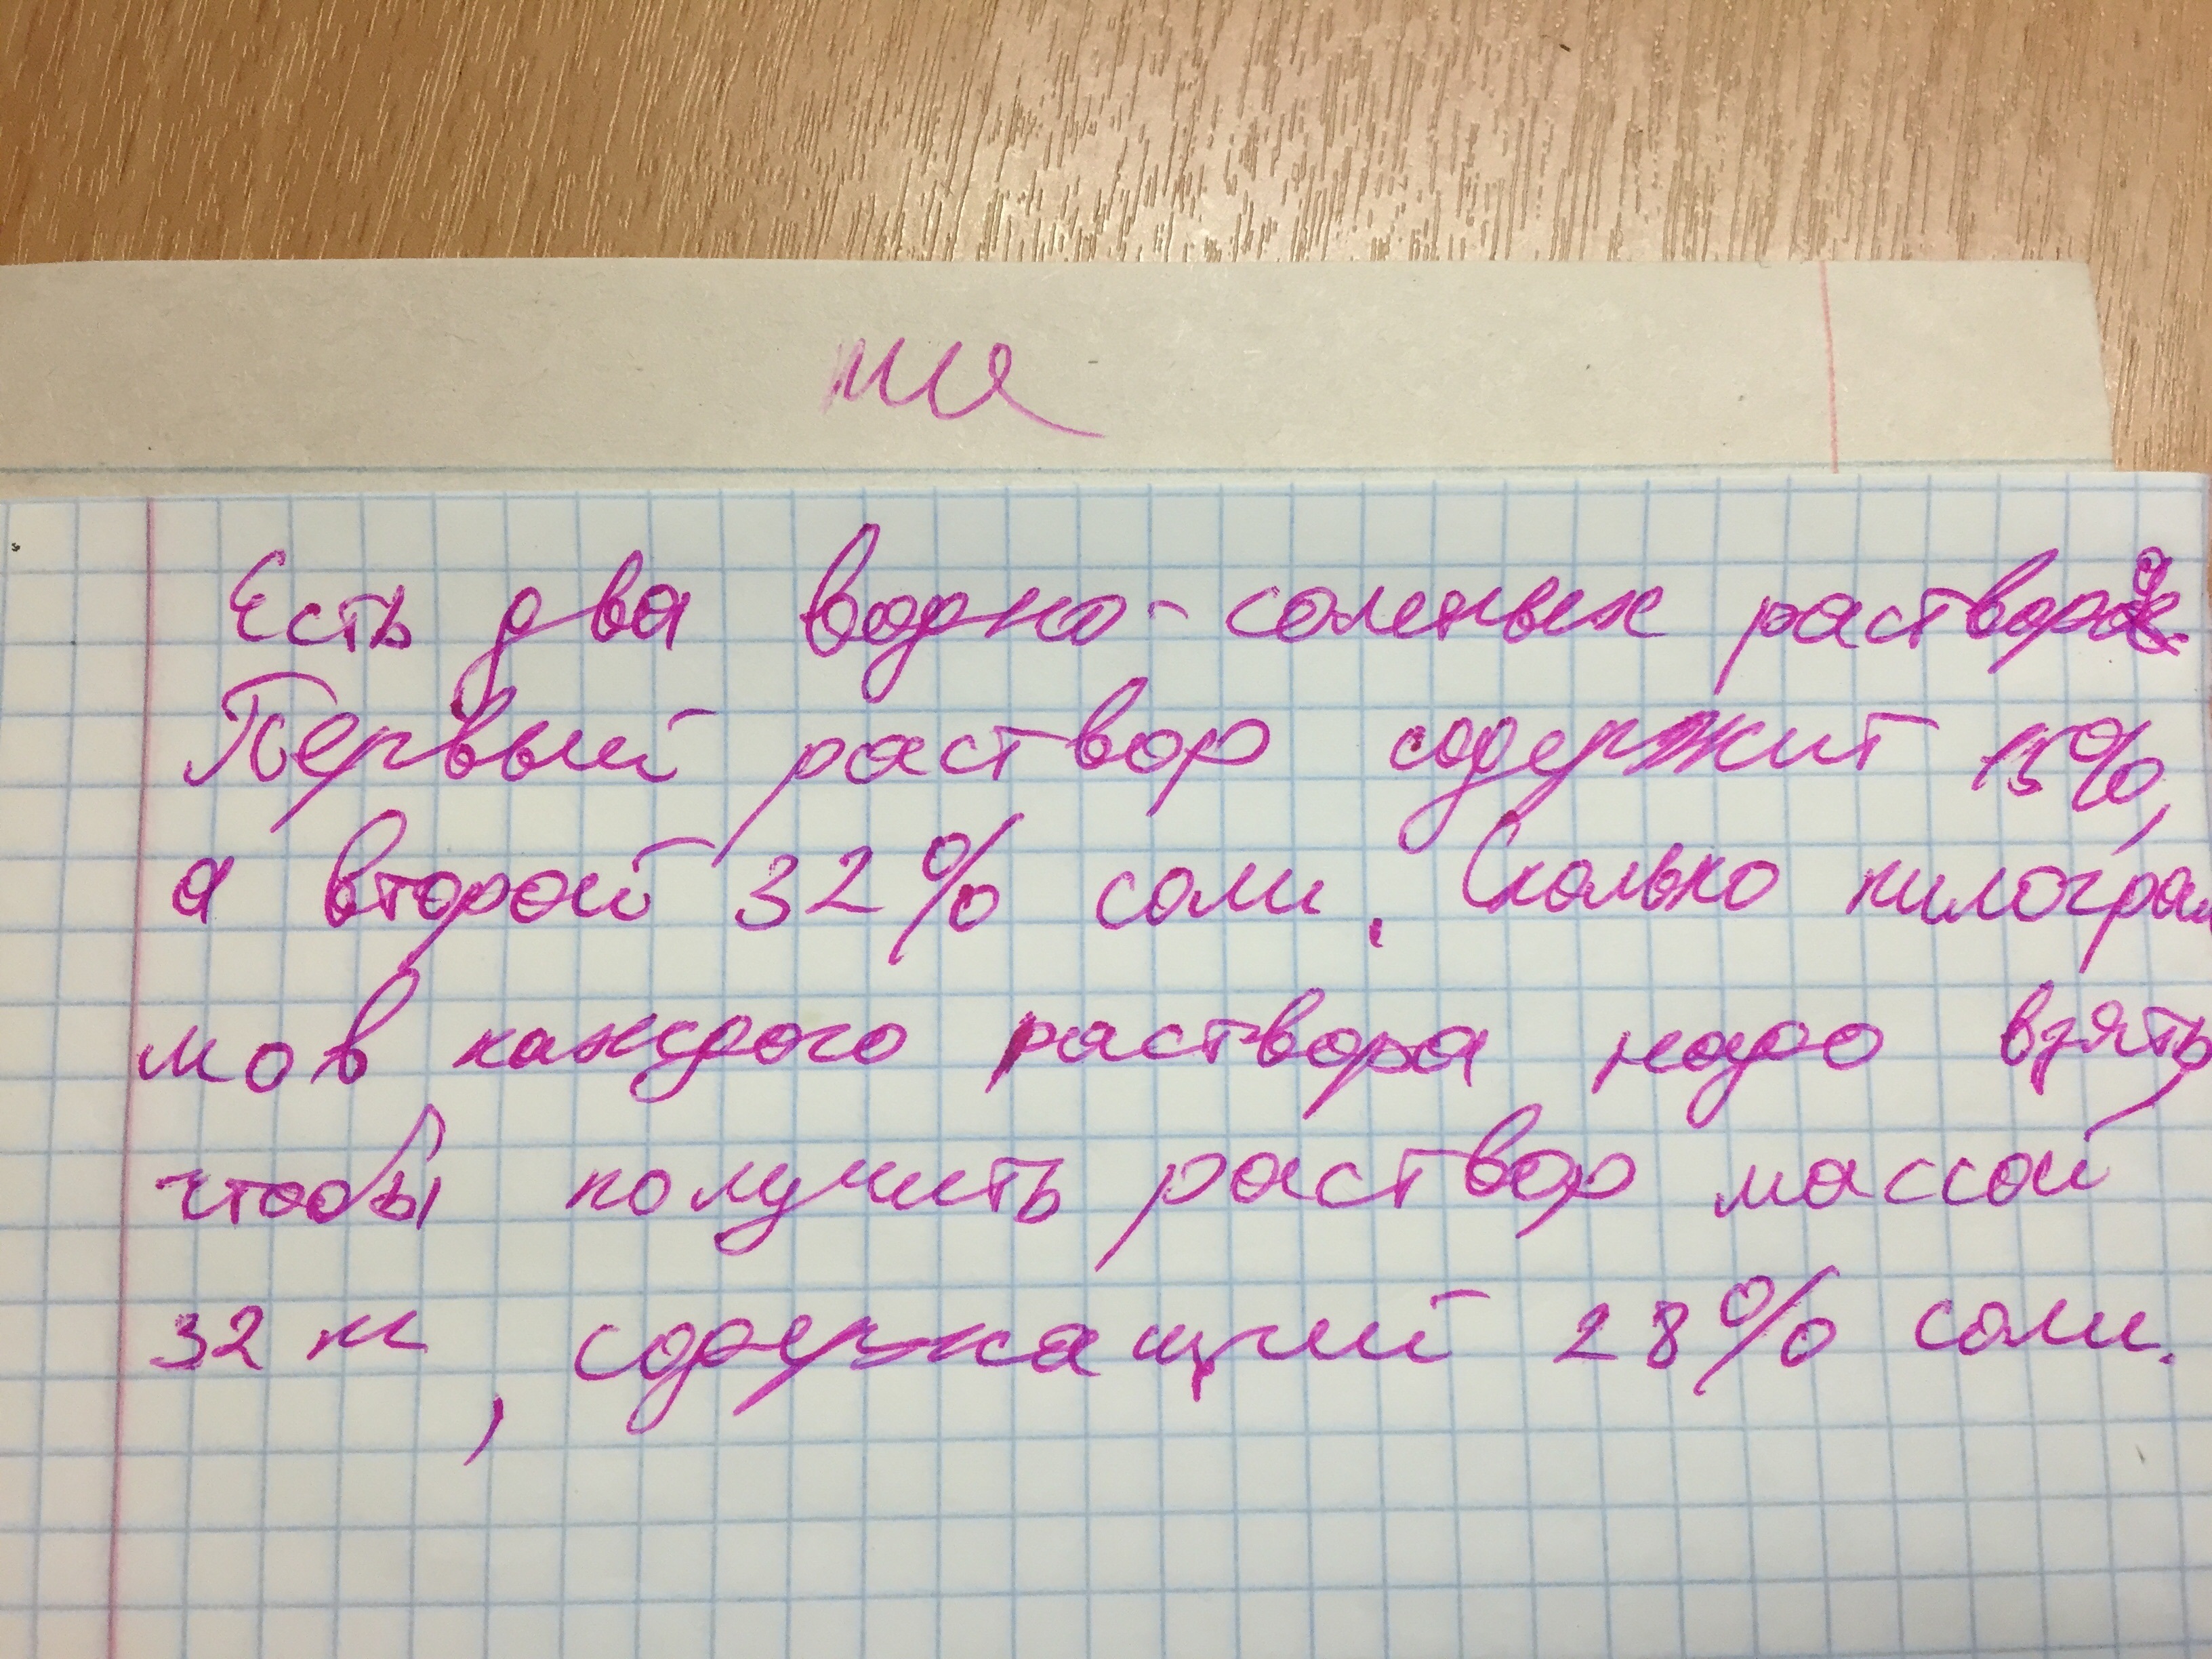 ше
Есть два водно-соленых раствора.
Первый раствор содержит 15%,
а второй 32% соли. Сколько килограм
мов каждого раствора надо взять
чтобы получить раствор массой
32 к, содержащий 28% соли.